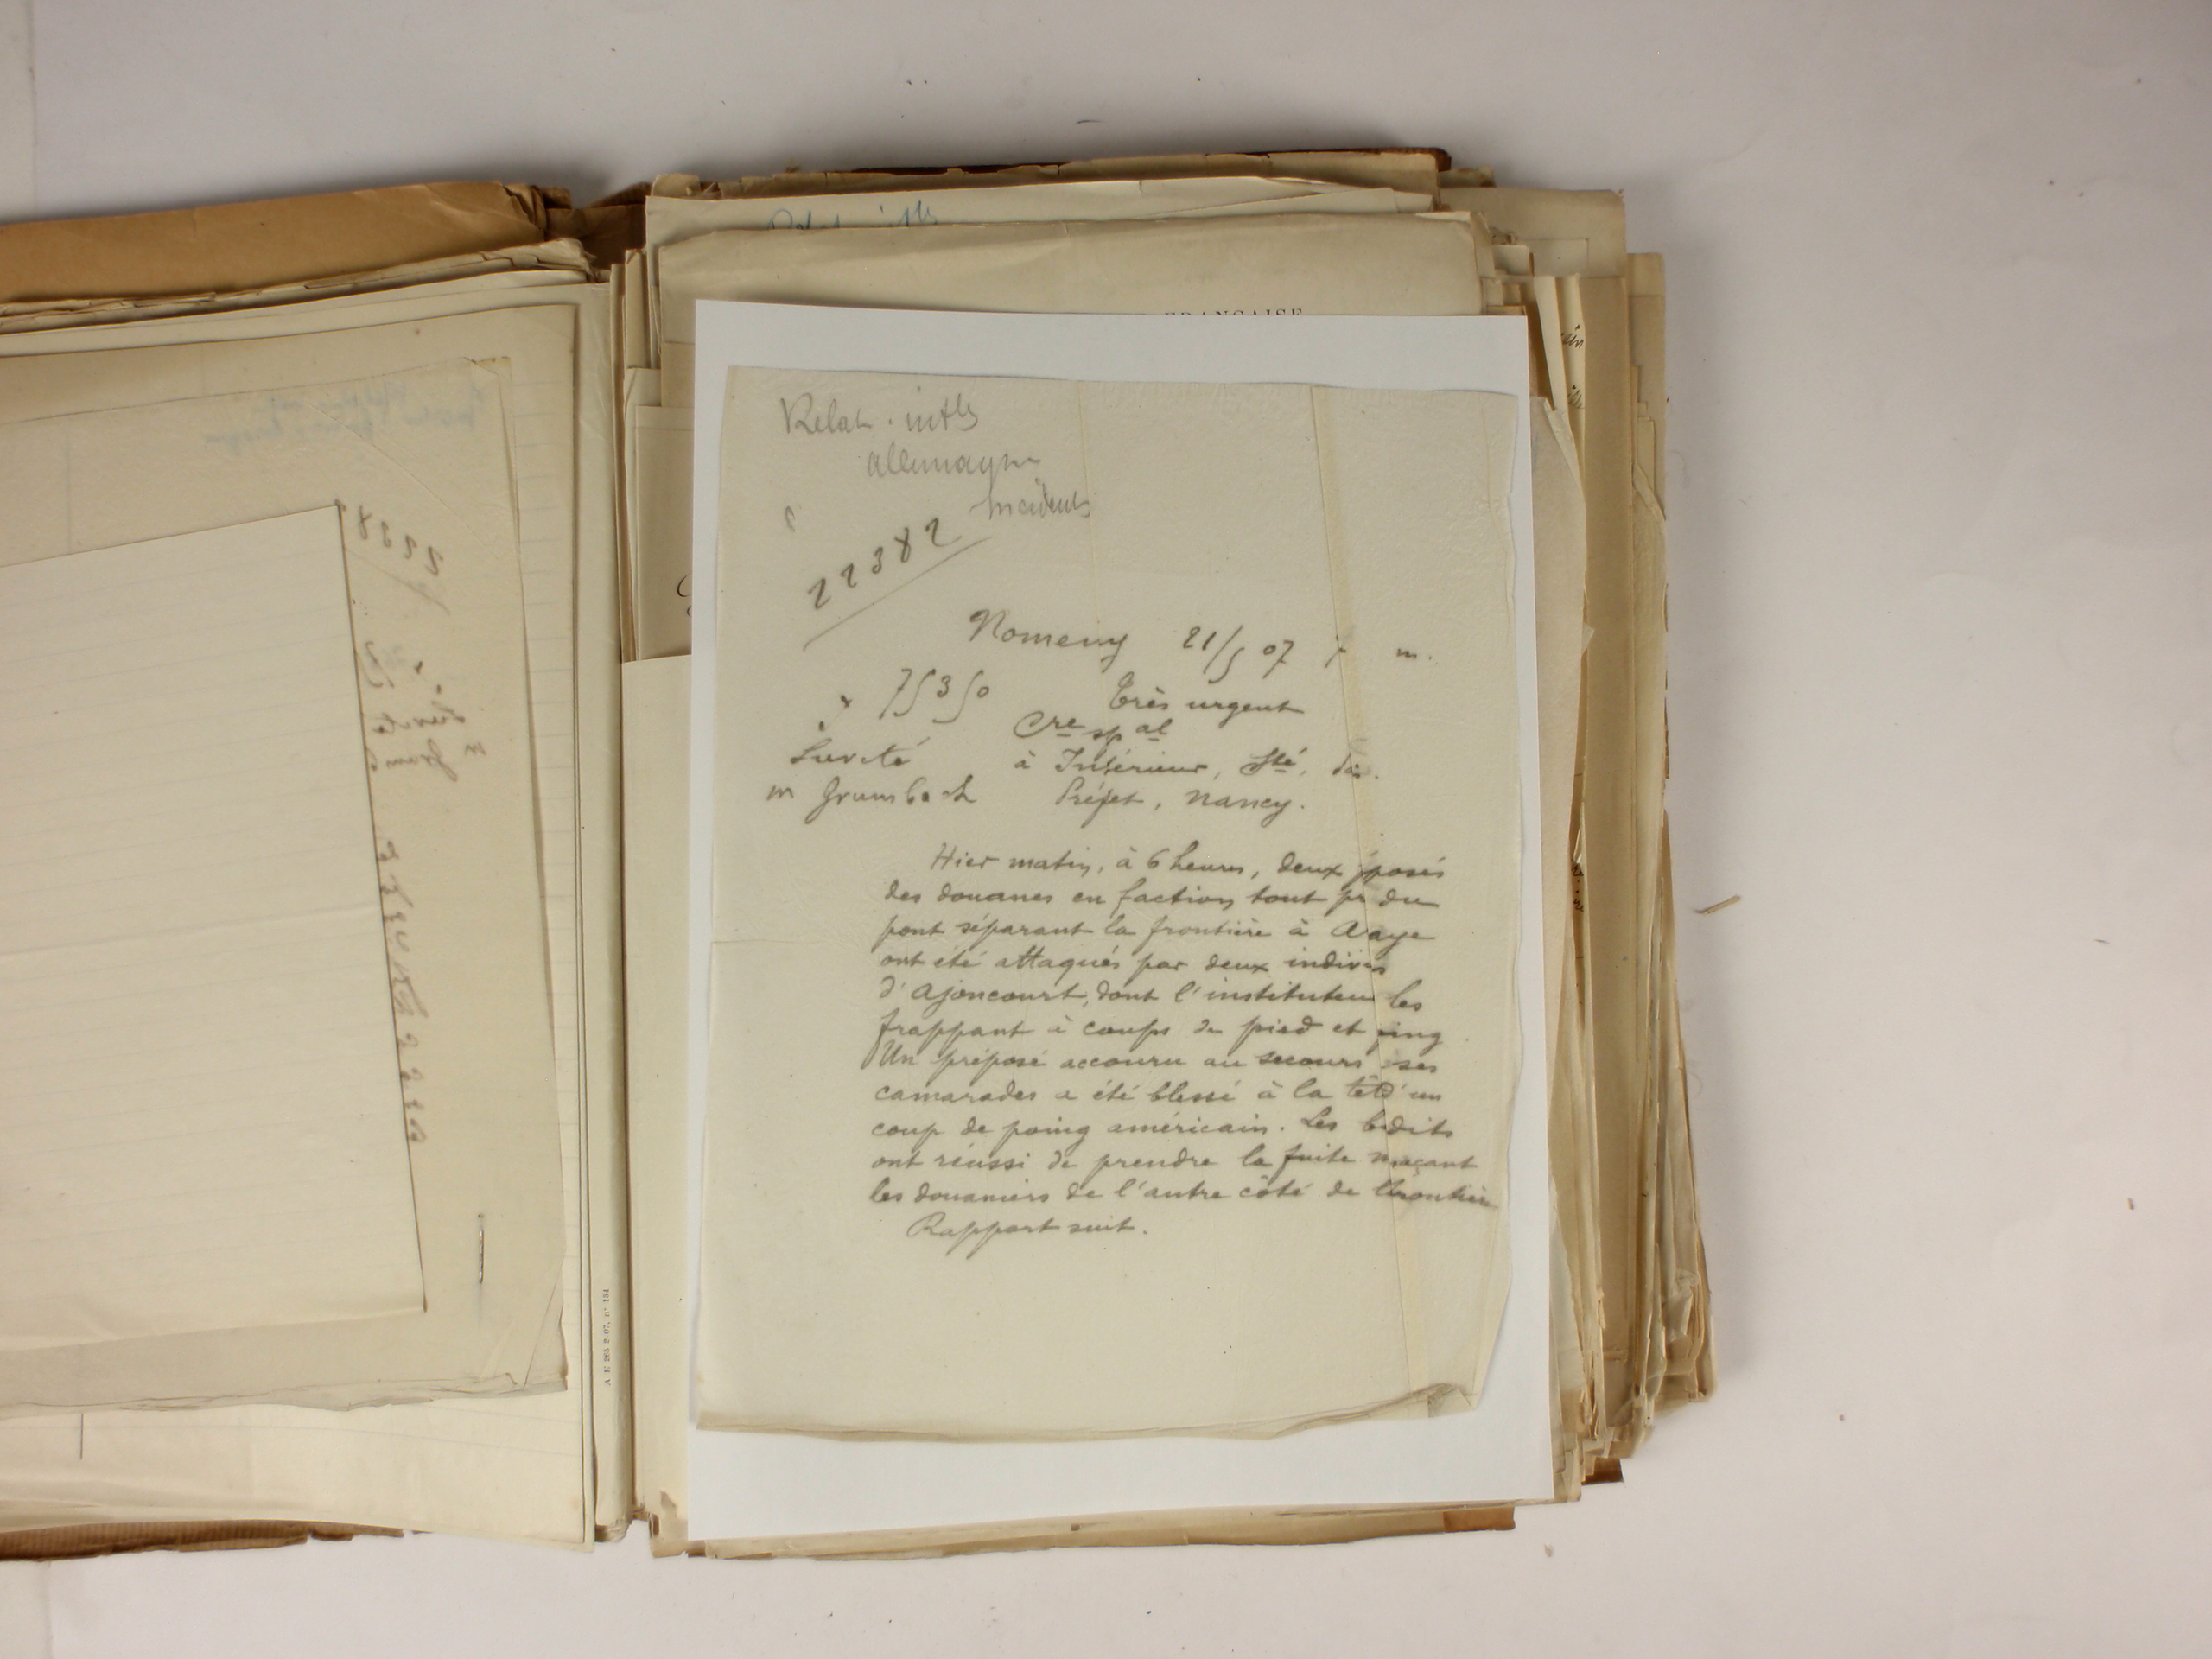 FRANÇAISE
Relat. intles
allemagne
Incidents
22382
Nomeny 21/5 07 m.
75350 Très urgent
Cre spal
Sureté à Intérieur, Sté,
m Grumbach Préfet, Nancy.
Hier matin, à 6 heures, deux posés
des douanes en faction tout pr du
pont séparant la frontière à
ont été attaqués par deux
d'Ajoncourt, dont l'instituteur les
frappant à coups de pied et
Un préposé accouru au secours ses
camarades a été blessé à la un
coup de poing américain. Les
ont réussi de prendre la fuite
les douaniers de l'autre côté de
Rapport suit.
A E 265 2-07. n° 151